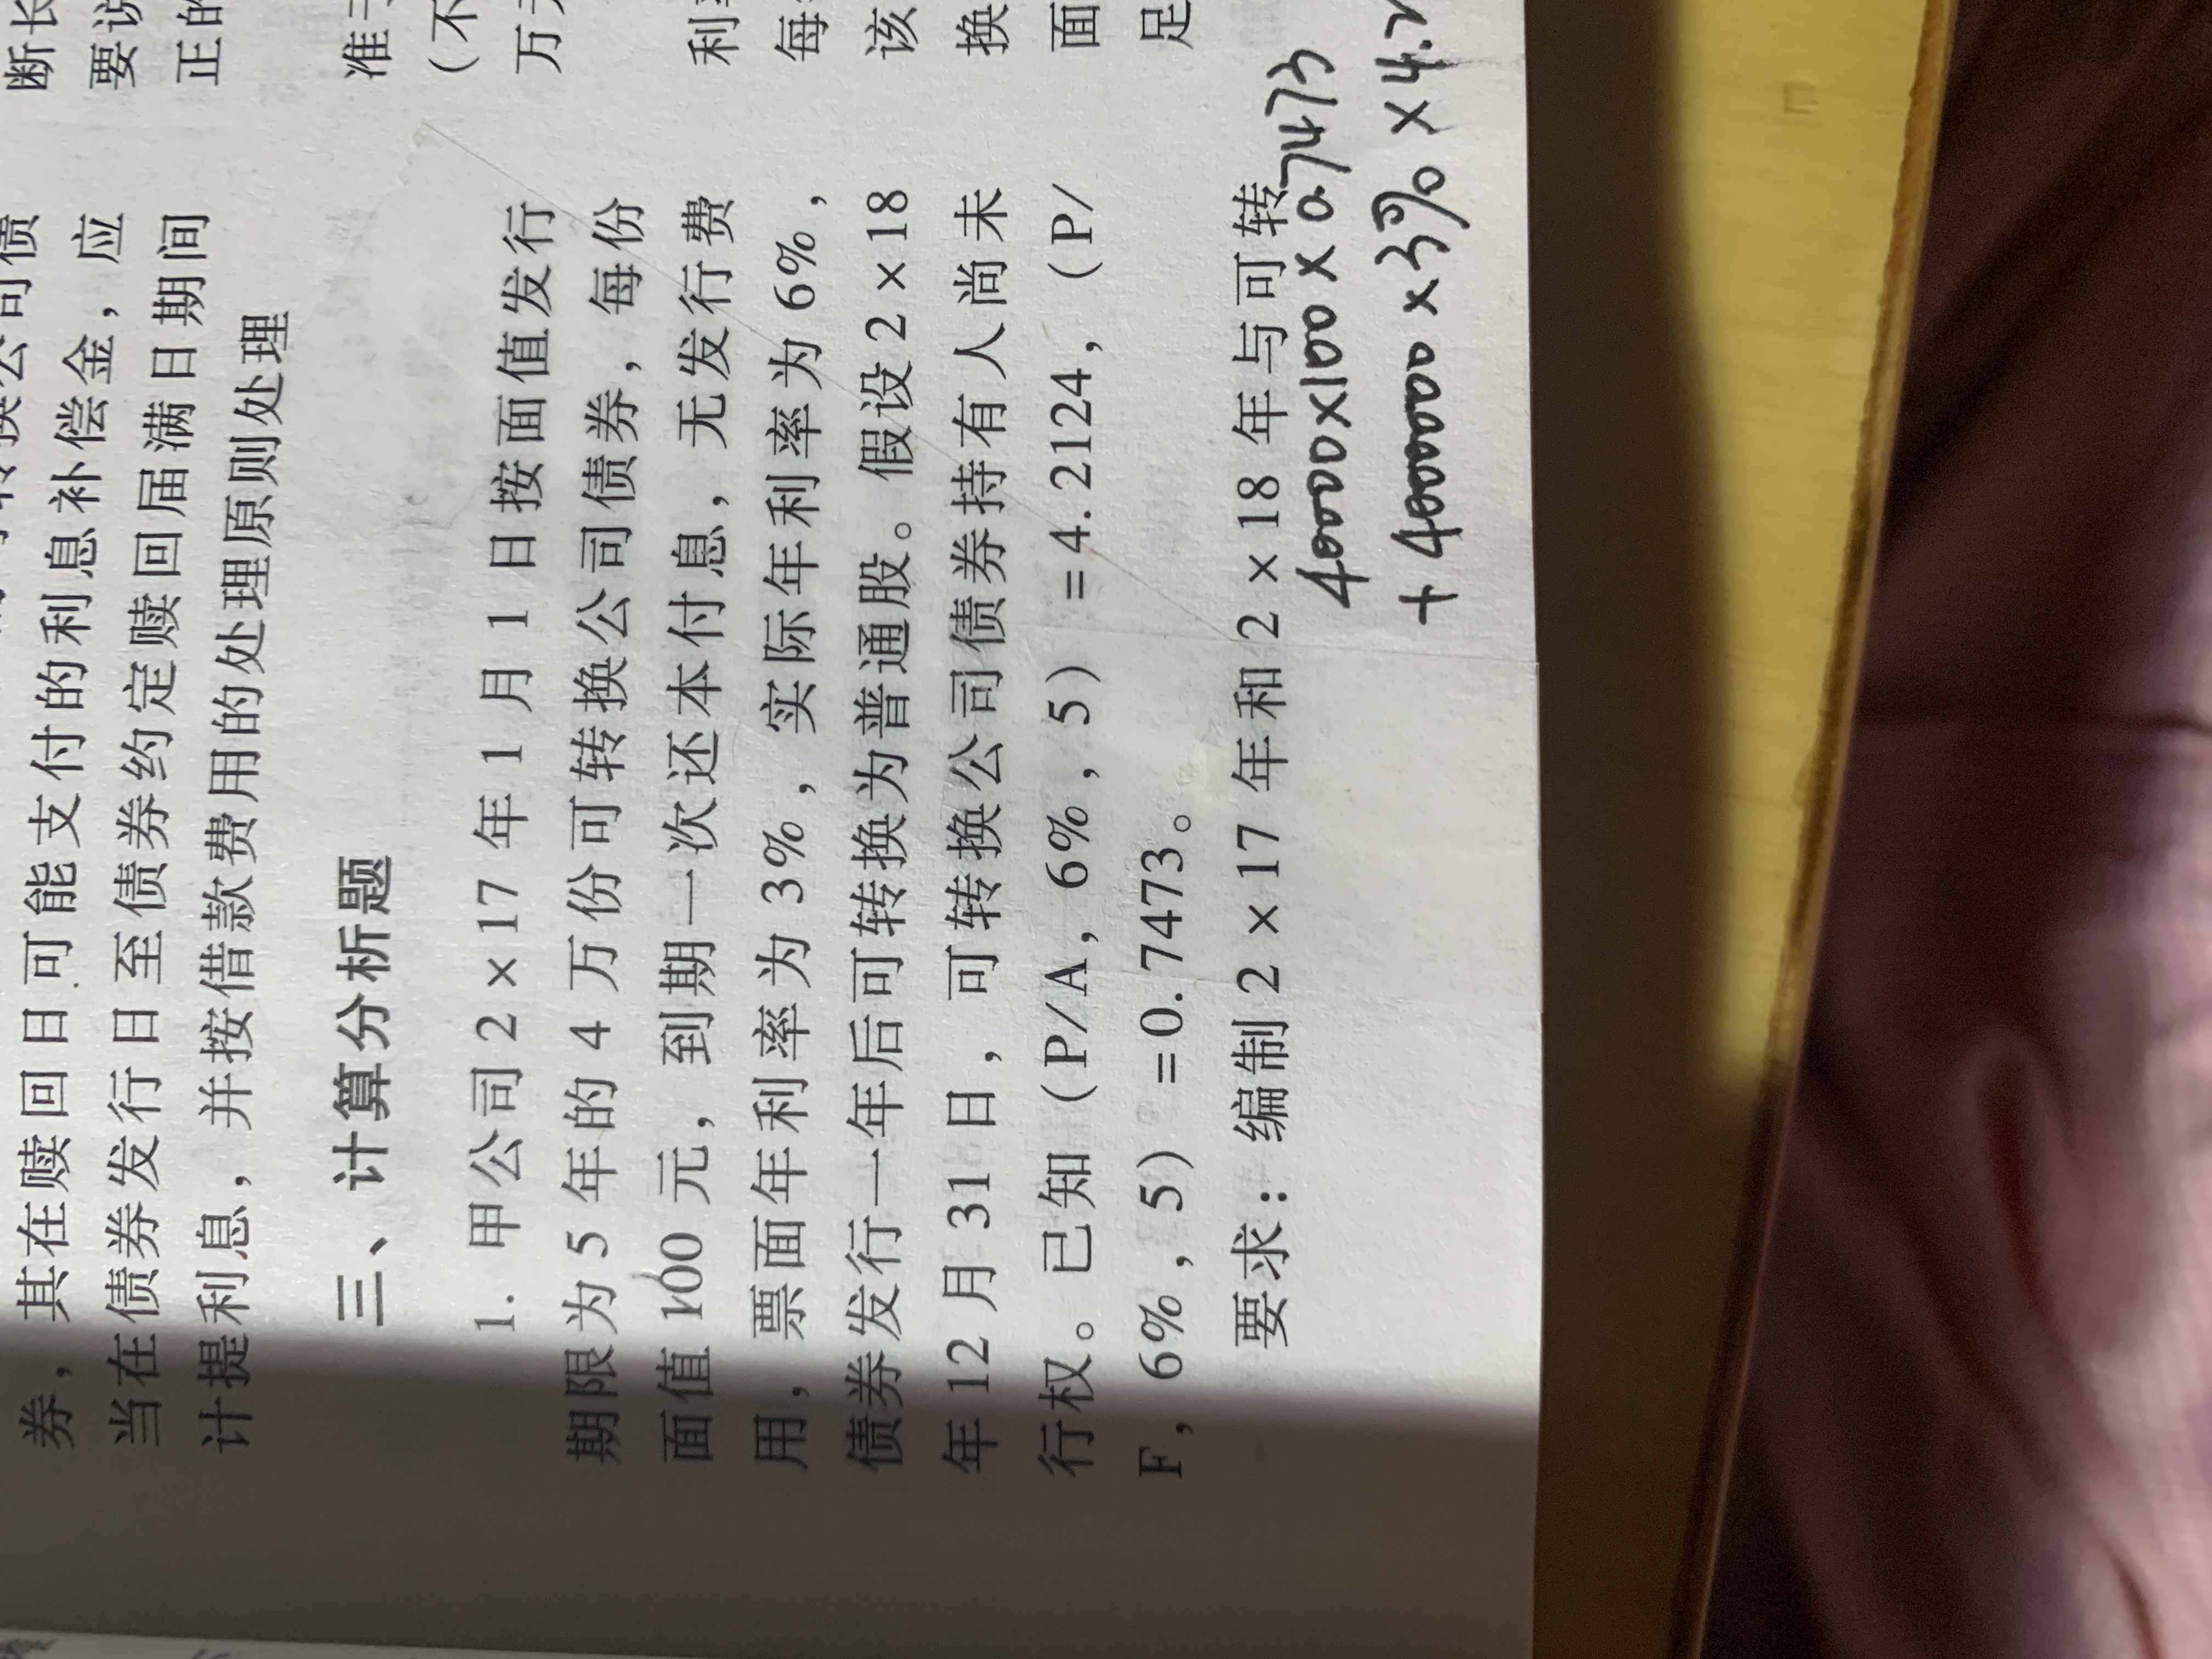 券，其在赎回日可能支付的利息补偿金，应
当在债券发行日至债券约定赎回届满日期间
计提利息，并按借款费用的处理原则处理
三、计算分析题
1. 甲公司2×17年1月1日按面值发行
期限为5年的4万份可转换公司债券，每份
面值100元，到期一次还本付息，无发行费
用，票面年利率为3%，实际年利率为6%，
债券发行一年后可转换为普通股。假设2×18
年12月31日，可转换公司债券持有人尚未
行权。已知（P/A，6%，5）=4.2124，（P/
F，6%，5）=0.7473。
要求：编制2×17年和2×18年与可转
40000×100×0.7473
+4000000×3%×4.2
断长
要说
正的
准
（不
万
利
每
该
换
面
足